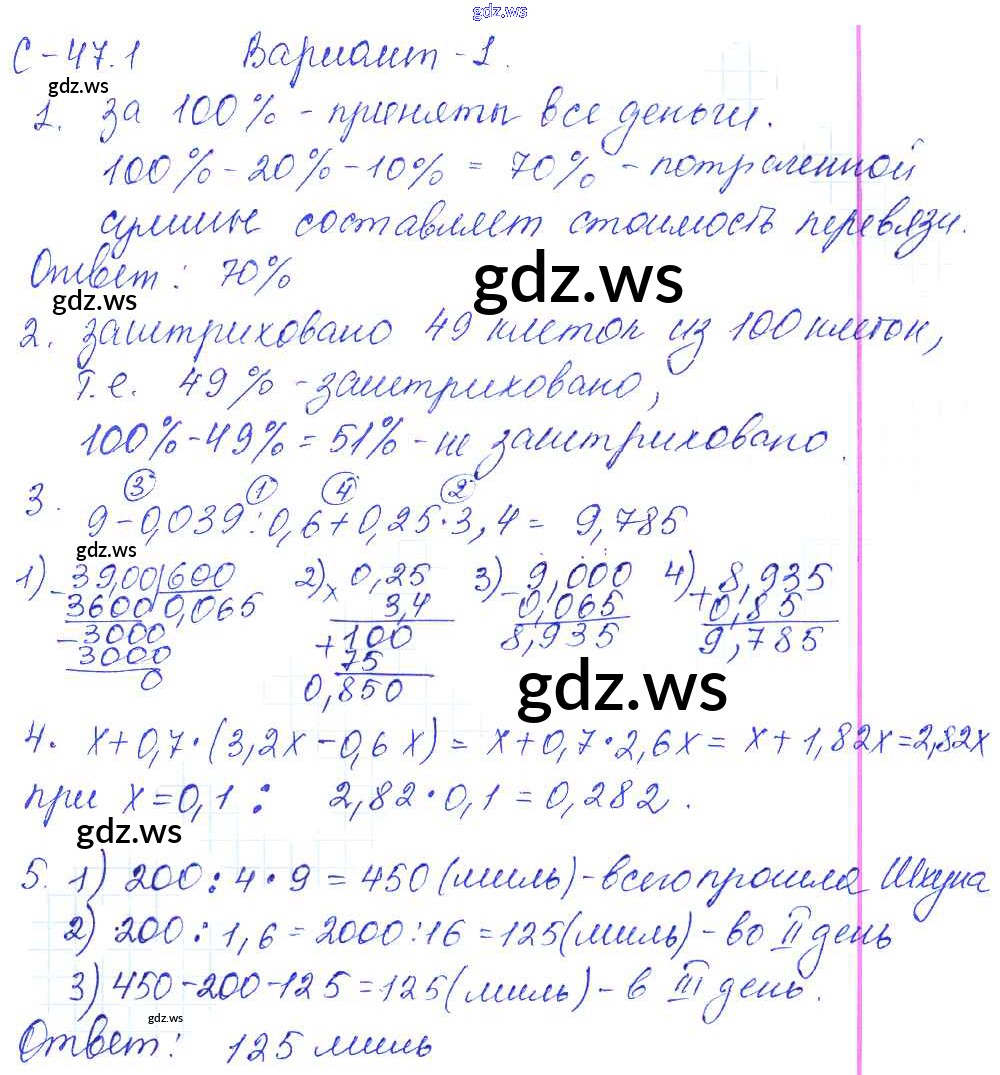 gdz.ws
С-47.1 Вариант-1.
gdz.ws
1. За 100% - приняты все деньги.
100% - 20% - 10% = 70% - потраченной
суммы составляет стоимость перевязи.
Ответ: 70%
gdz.ws
gdz.ws
2. Заштриховано 49 клеток из 100 клеток,
т.е. 49% - заштриховано,
100% - 49% = 51% - не заштриховано.
3 1 4 2
3. 9 - 0,039 : 0,6 + 0,25 · 3,4 = 9,785
gdz.ws
1) - 39,00 | 600 2) x 0,25 3) - 9,000 4) + 8,935
3600 0,065 3,4 0,065 0,85
- 3000 + 100 8,935 9,785
3000 75
0 0,850
gdz.ws
4. x + 0,7 · (3,2x - 0,6x) = x + 0,7 · 2,6x = x + 1,82x = 2,82x
при x = 0,1 : 2,82 · 0,1 = 0,282.
gdz.ws
5. 1) 200 : 4 · 9 = 450 (миль) - всего прошла Шхуна
2) 200 : 1,6 = 2000 : 16 = 125 (миль) - во II день
3) 450 - 200 - 125 = 125 (миль) - в III день.
gdz.ws
Ответ: 125 миль